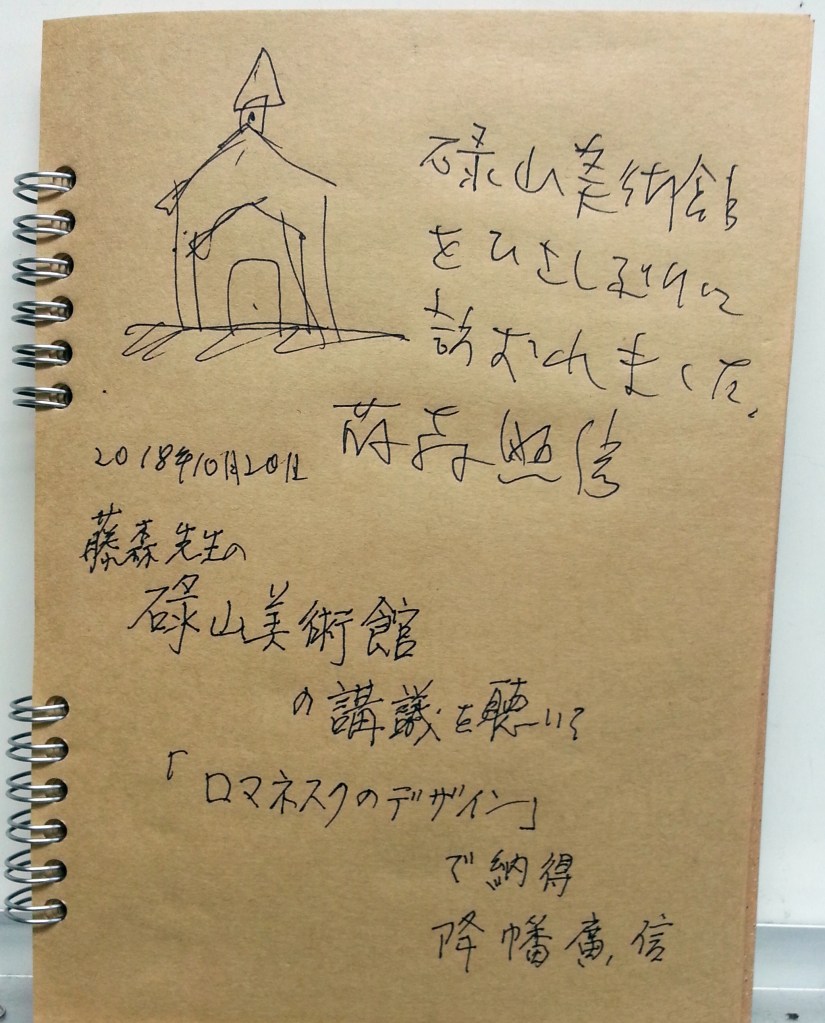 碌山美術館
をひさしぶりに
訪むれました。
藤森照信
2018年10月20日
藤森先生の
碌山美術館
の講議を聴いて
「ロマネスクのデザイン」
で納得
降幡廣信